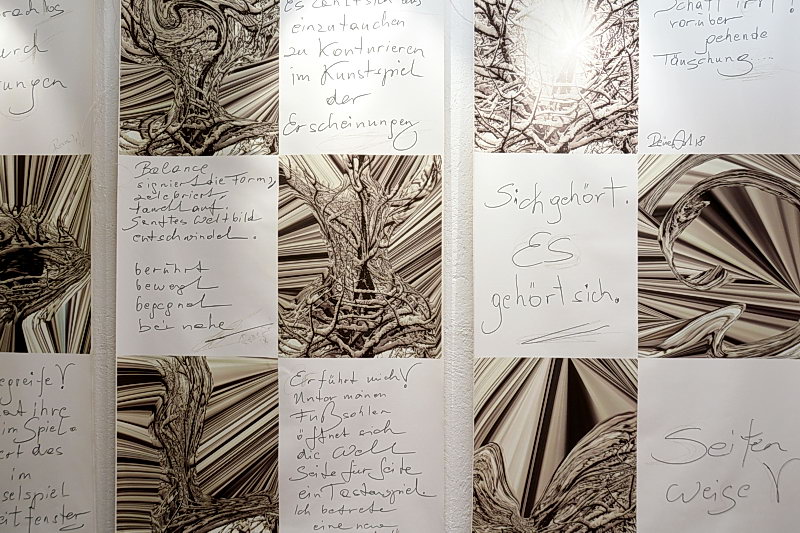 urch
es sehnt sich aus
einzutauchen
zu Konturieren
im Kunstspiel
der
Erscheinungen
vorüber
gehende
Täuschung....
Balance
signiert die Form,
zelebriert
sanftes Weltbild
entschwindet.
berührt
bewegt
begegnet
bei nahe
Sichgehört.
ES
gehört sich.
egreife!
at ihre
im Spiel.
ert das
im
selspiel
eitfenster
Er führt mich!
Unter meinen
Fußsohlen
öffnet sich
die Welt
Seite für Seite
ein Tastenspiel.
Ich betrete
eine neue
Seiten
weise!